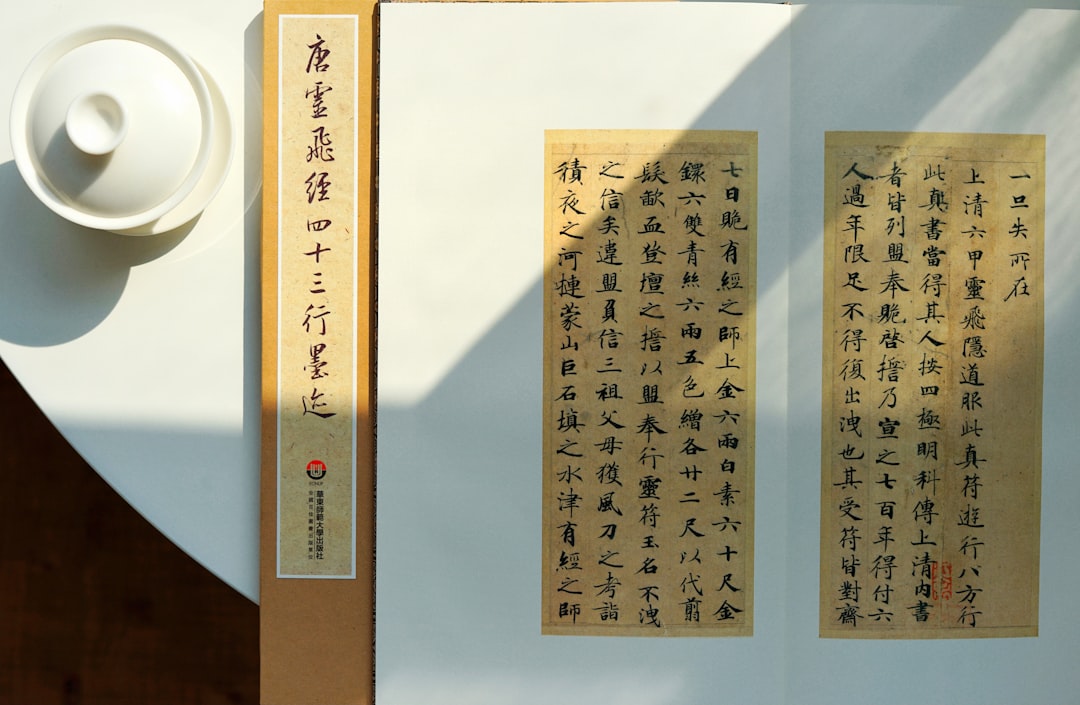 唐靈飛經四十三行墨迹
ECNUP
華東師範大學出版社
全國百佳圖書出版單位
一旦失所在
上清六甲靈飛隱道服此真符遊行八方行
此真書當得其人按四極明科傳上清内書
者皆列盟奉貺啓誓乃宣之七百年得付六
人過年限足不得復出洩也其受符皆對齋
七日貺有經之師上金六兩白素六十尺金
鐶六雙青絲六兩五色繒各廿二尺以代翦
髮歃血登壇之誓以盟奉行靈符玉名不洩
之信矣違盟負信三祖父母獲風刀之考詣
積夜之河摙蒙山巨石填之水津有經之師